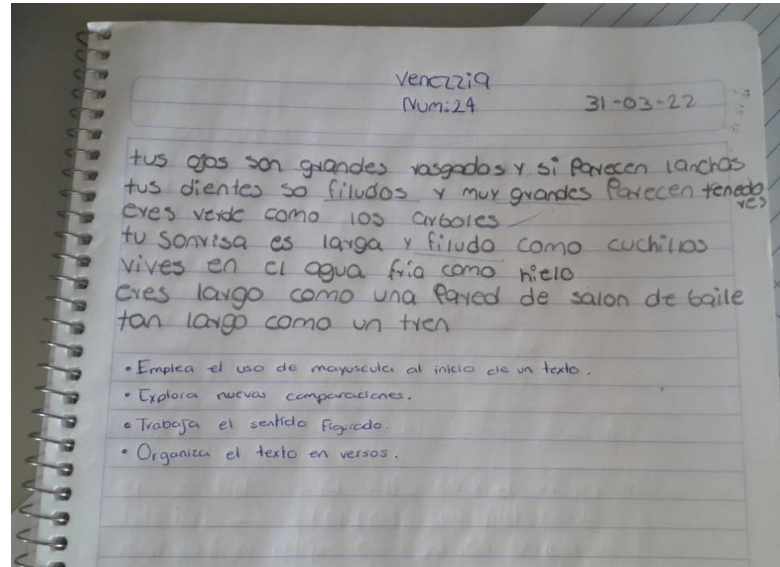 Venezzia
Num:24 31-03-22
tus ojos son grandes rasgados y si parecen lanchas
tus dientes so filudos y muy grandes parecen tenedores
eres verde como los arboles
tu sonrisa es larga y filudo como cuchillos
vives en el agua fria como hielo
eres largo como una pared de salon de baile
tan largo como un tren
• Emplea el uso de mayuscula al inicio de un texto.
• Explora nuevas comparaciones.
• Trabaja el sentido figurado.
• Organiza el texto en versos.